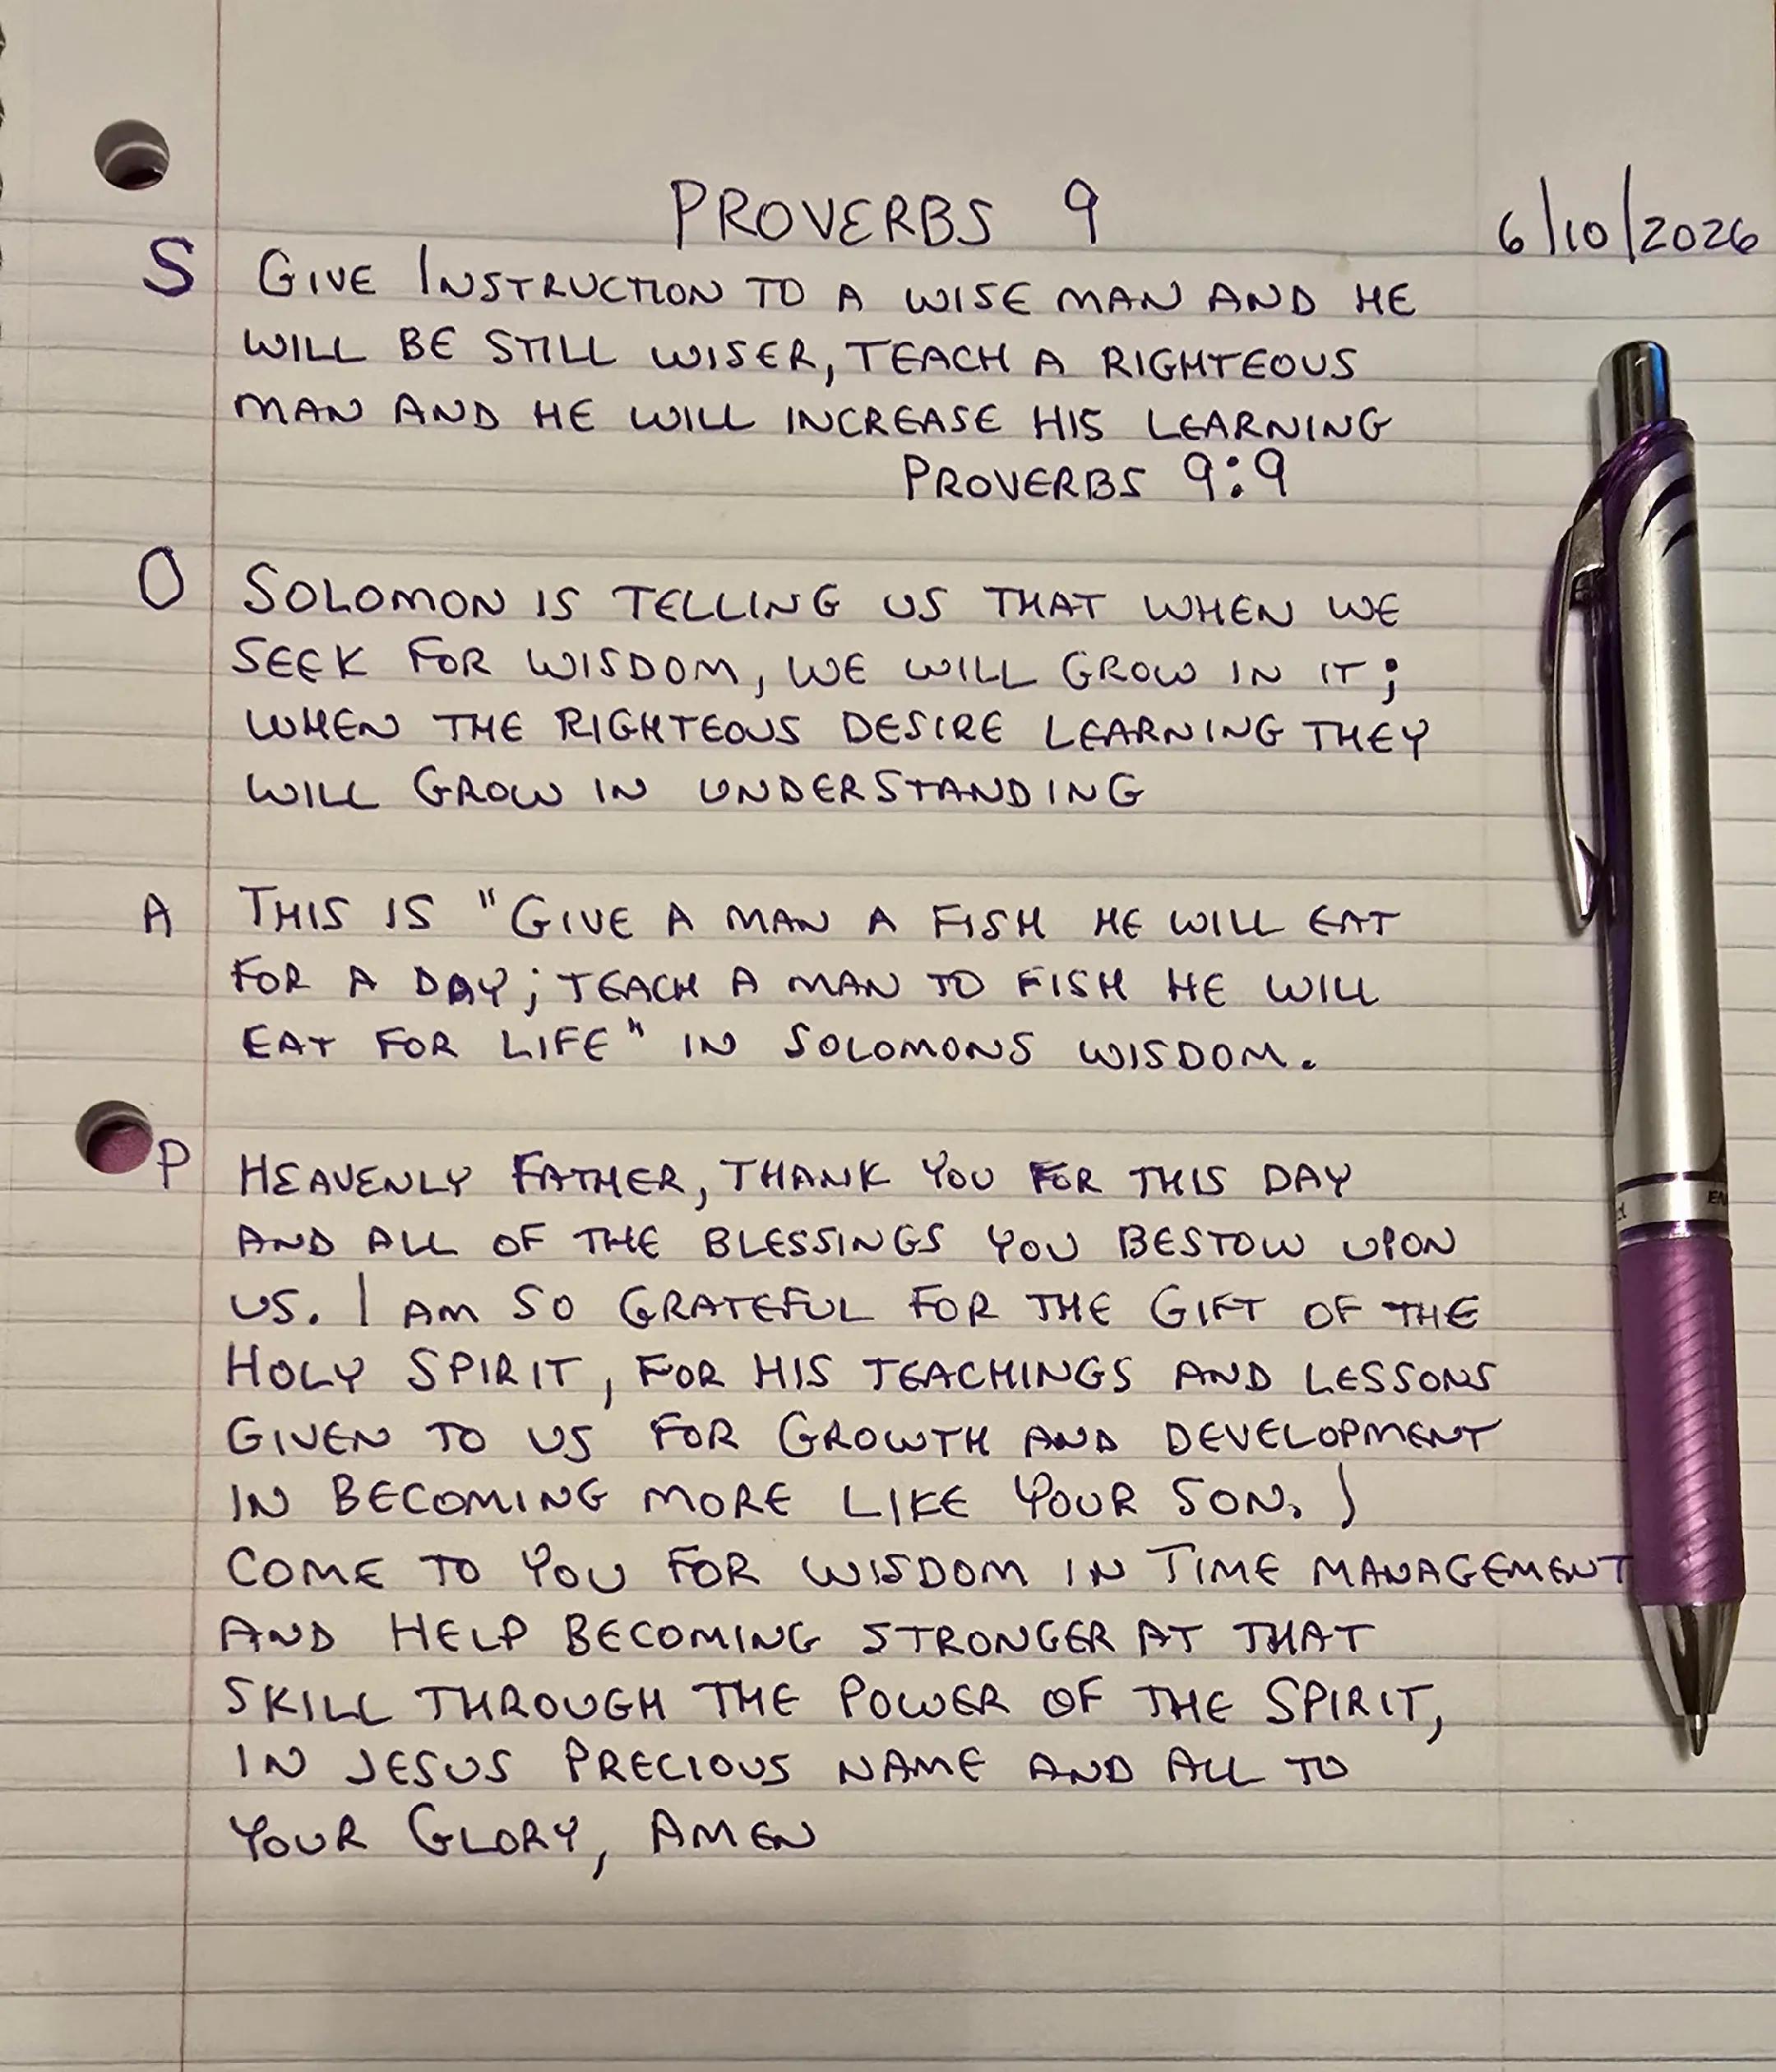 PROVERBS 9
6/10/2026
S GIVE INSTRUCTION TO A WISE MAN AND HE
WILL BE STILL WISER, TEACH A RIGHTEOUS
MAN AND HE WILL INCREASE HIS LEARNING
PROVERBS 9:9
O SOLOMON IS TELLING US THAT WHEN WE
SEEK FOR WISDOM, WE WILL GROW IN IT;
WHEN THE RIGHTEOUS DESIRE LEARNING THEY
WILL GROW IN UNDERSTANDING
A THIS IS "GIVE A MAN A FISH HE WILL EAT
FOR A DAY; TEACH A MAN TO FISH HE WILL
EAT FOR LIFE" IN SOLOMONS WISDOM.
P HEAVENLY FATHER, THANK YOU FOR THIS DAY
AND ALL OF THE BLESSINGS YOU BESTOW UPON
US. I AM SO GRATEFUL FOR THE GIFT OF THE
HOLY SPIRIT, FOR HIS TEACHINGS AND LESSONS
GIVEN TO US FOR GROWTH AND DEVELOPMENT
IN BECOMING MORE LIKE YOUR SON. I
COME TO YOU FOR WISDOM IN TIME MANAGEMENT
AND HELP BECOMING STRONGER AT THAT
SKILL THROUGH THE POWER OF THE SPIRIT,
IN JESUS PRECIOUS NAME AND ALL TO
YOUR GLORY, AMEN